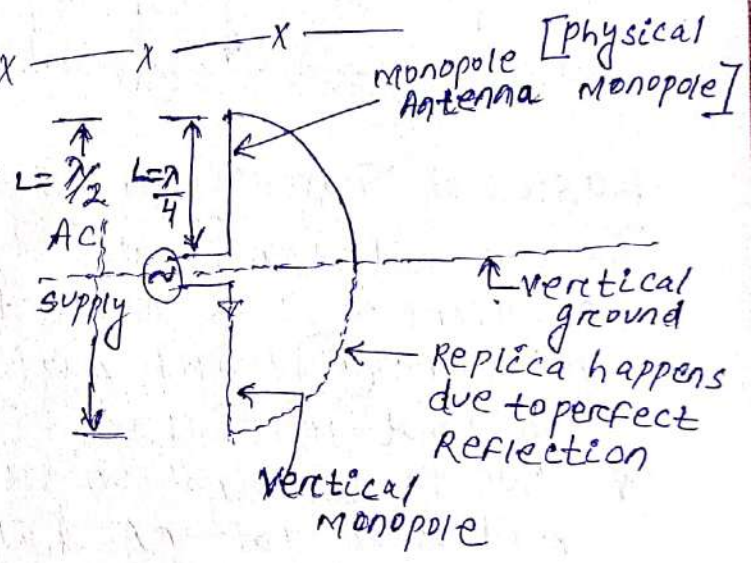 x — x — x —
[physical
monopole
Antenna monopole]
L= λ/2
L=λ/4
AC
supply
~
verctical
ground
Replica happens
due to percfect
Reflection
Verctical
monopole